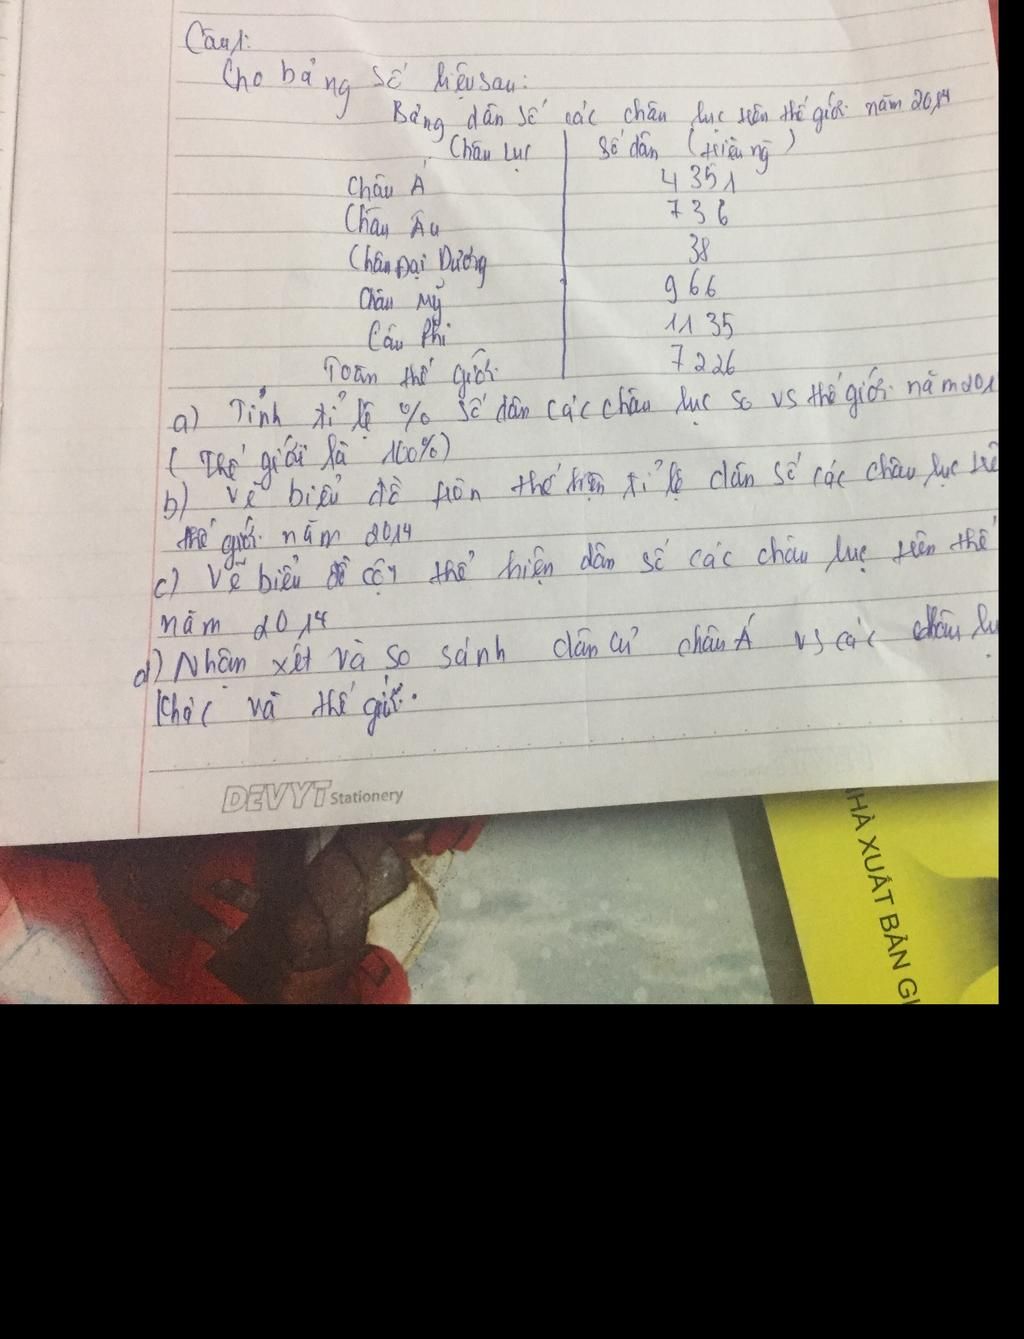 Câu1:
Cho bảng số liệu sau:
Bảng dân số các châu lục trên thế giới năm 2014
Châu Lục | Số dân (triệu ng)
Châu Á | 4351
Châu Âu | 736
Châu Đại Dương | 38
Châu Mỹ | 966
Câu Phi | 1135
Toàn thế giới | 7226
a) Tính tỉ lệ % số dân các châu lục so vs thế giới năm 201
( Thế giới là 100%)
b) Vẽ biểu đồ tròn thể hiện tỉ lệ dân số các châu lục trê
thế giới năm 2014
c) Vẽ biểu đồ cột thể hiện dân số các châu lục trên thế
năm 2014
d) Nhận xét và so sánh dân cư châu Á vs các châu lụ
khác và thế giới.
DEVYT Stationery
HÀ XUẤT BẢN GI